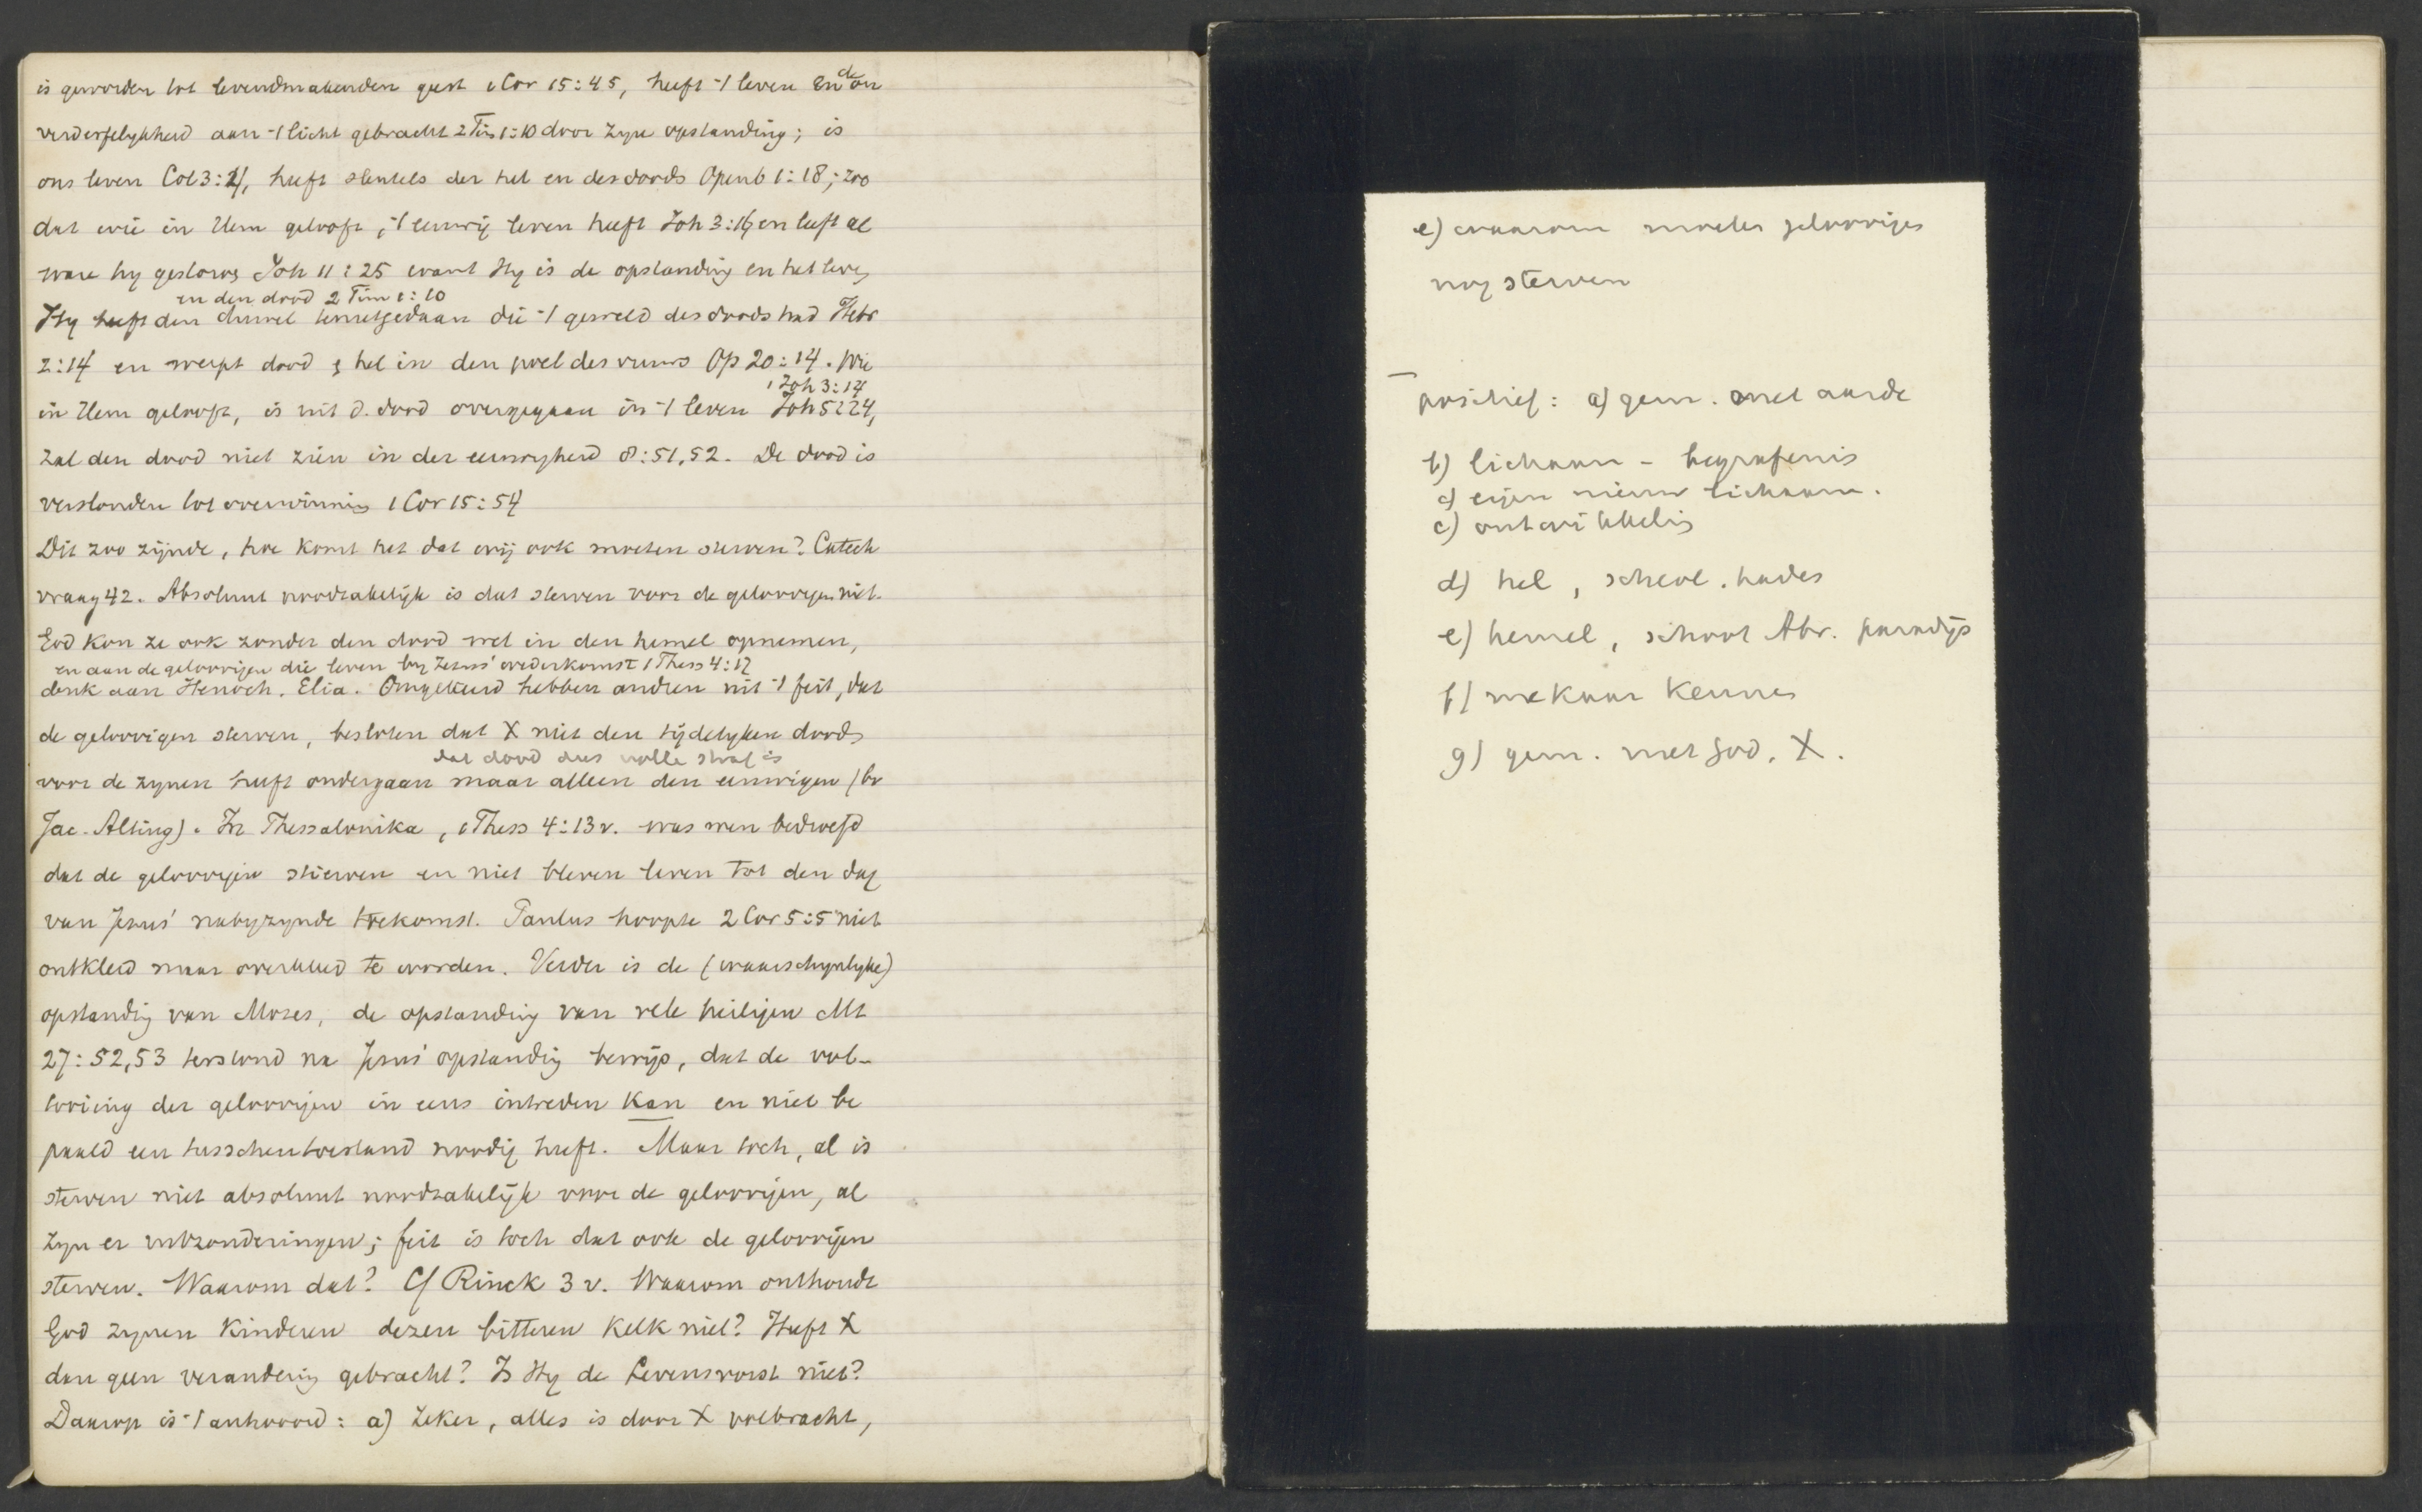 is geworden tot levendmakenden geest 1 Cor 15:45, heeft 't leven en de on
verderfelykheid aan 't licht gebracht 2 Tim 1:10 door zyne opstanding; is
ons leven Col 3:4, heeft sleutels der hel en des doods Openb 1:18; zoo
dat wie in Hem gelooft, 't eeuwig leven heeft Joh 3:16 en leeft al
ware hy gestorven Joh 11:25 want Hy is de opstanding en het leven
en den dood 2 Tim 1:10
Hy heeft den duivel tenietgedaan die 't geweld des doods had Hebr
2:14 en werpt dood & hel in den poel des vuurs Op 20:14. Wie
1 Joh 3:14
in Hem gelooft, is uit d. dood overgegaan in 't leven Joh 5:24,
zal den dood niet zien in der eeuwigheid 8:51,52. De dood is
verslonden tot overwinning 1 Cor 15:54
Dit zoo zijnde, hoe komt het dat wij ook moeten sterven? Catech
vraag 42. Absoluut noodzakelijk is dat sterven voor de geloovigen niet.
God kon ze ook zonder den dood wel in den hemel opnemen,
en aan de geloovigen die leven by Jezus' wederkomst 1 Thess 4:17
denk aan Henoch, Elia. Omgekeerd hebben andren uit 't feit, dat
de geloovigen sterven, besloten dat X niet den tijdelyken dood
dat dood dus volle straf is
voor de zynen heeft ondergaan maar alleen den eeuwigen (bv
Jac. Alting). In Thessalonika, 1 Thess 4:13v. was men bedroefd
dat de geloovigen stierven en niet bleven leven tot den dag
van Jezus' nabyzynde toekomst. Paulus hoopte 2 Cor 5:5 niet
ontkleed maar overkleed te worden. Verder is de (waarschynlyke)
opstanding van Mozes, de opstanding van vele heiligen Mt
27:52,53 terstond na Jezus' opstanding bewijs, dat de vol-
tooiing der geloovigen in eens intreden kan en niet be
paald een tusschentoestand noodig heeft. Maar toch, al is
sterven niet absoluut noodzakelijk voor de geloovigen, al
zyn er uitzonderingen; feit is toch dat ook de geloovigen
sterven. Waarom dat? Cf Rinck 3v. Waarom onthoudt
God zynen kinderen dezen bitteren kelk niet? Heeft X
dan geen verandering gebracht? Is Hy de Levensvorst niet?
Daarop is 't antwoord: a) zeker, alles is door X volbracht,
e) waarom moeten geloovigen
nog sterven
positief: a) gem. met aarde
b) lichaam - begrafenis
c) eigen nieuw lichaam.
c) ontwikkeling
d) hel, scheol. hades
e) hemel, schoot Abr. paradijs
f) mekaar kennen
g) gem. met God, X.